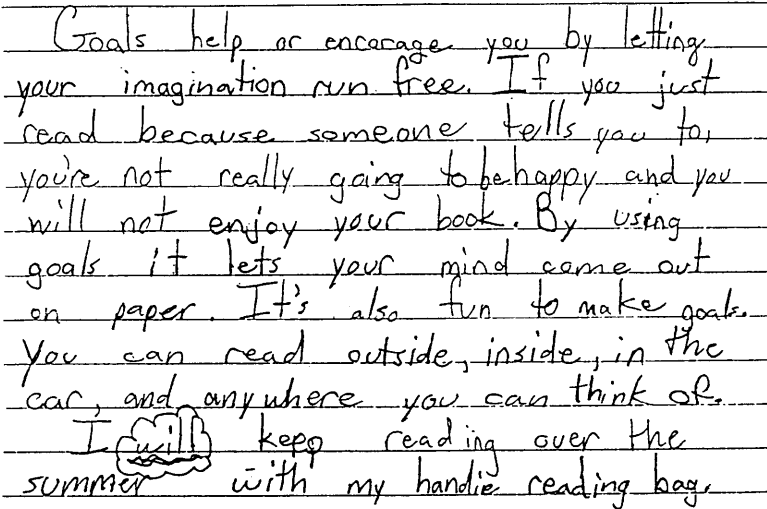 Goals help or encorage you by letting
your imagination run free. If you just
read because someone tells you to,
you're not really going to be happy and you
will not enjoy your book. By using
goals it lets your mind come out
on paper. It's also fun to make goals.
You can read outside, inside, in the
car, and anywhere you can think of.
I will keep reading over the
summer with my handie reading bag.